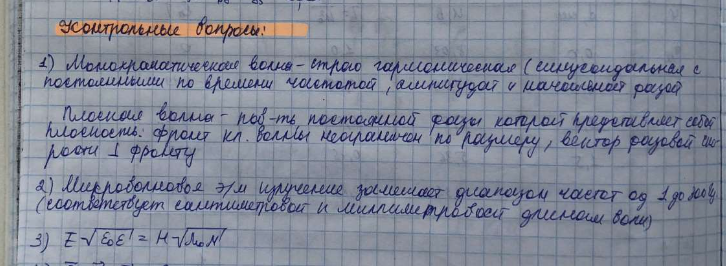 Контрольные вопросы:
1) Монохроматическая волна - строго гармоническая (синусоидальная с
постоянными по времени частотой, амплитудой и начальной фазой
Плоская волна - пов-ть постоянной фазы которой представляет собой
плоскость. фронт пл. волны неограничен по размеру, вектор фазовой ско-
рости ⊥ фронту
2) Микроволновое э/м излучение занимает диапазон частот от 1 до 300 Гц
(соответствует сантиметровой и миллиметровой длинам волн)
3) E √ε₀ε = H √μ₀μ